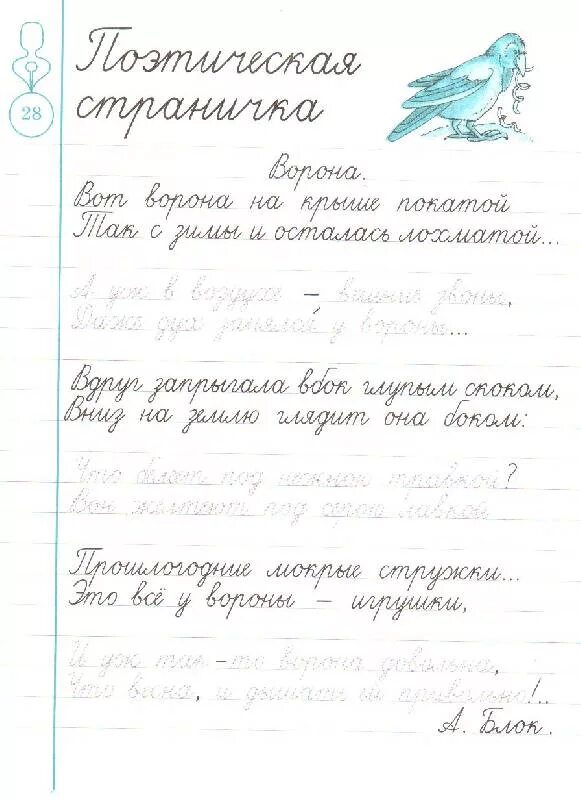 Поэтическая
страничка
28
Ворона.
Вот ворона на крыше покатой
Так с зимы и осталась лохматой...
А уж в воздухе – вешние звоны,
Даже дух занялся у вороны...
Вдруг запрыгала вбок глупым скоком,
Вниз на землю глядит она боком:
Что белеет под нежною травкой?
Вон желтеют под серою лавкой
Прошлогодние мокрые стружки...
Это всё у вороны – игрушки,
И уж так-то ворона довольна,
Что весна, и дышать ей привольно!..
А. Блок.